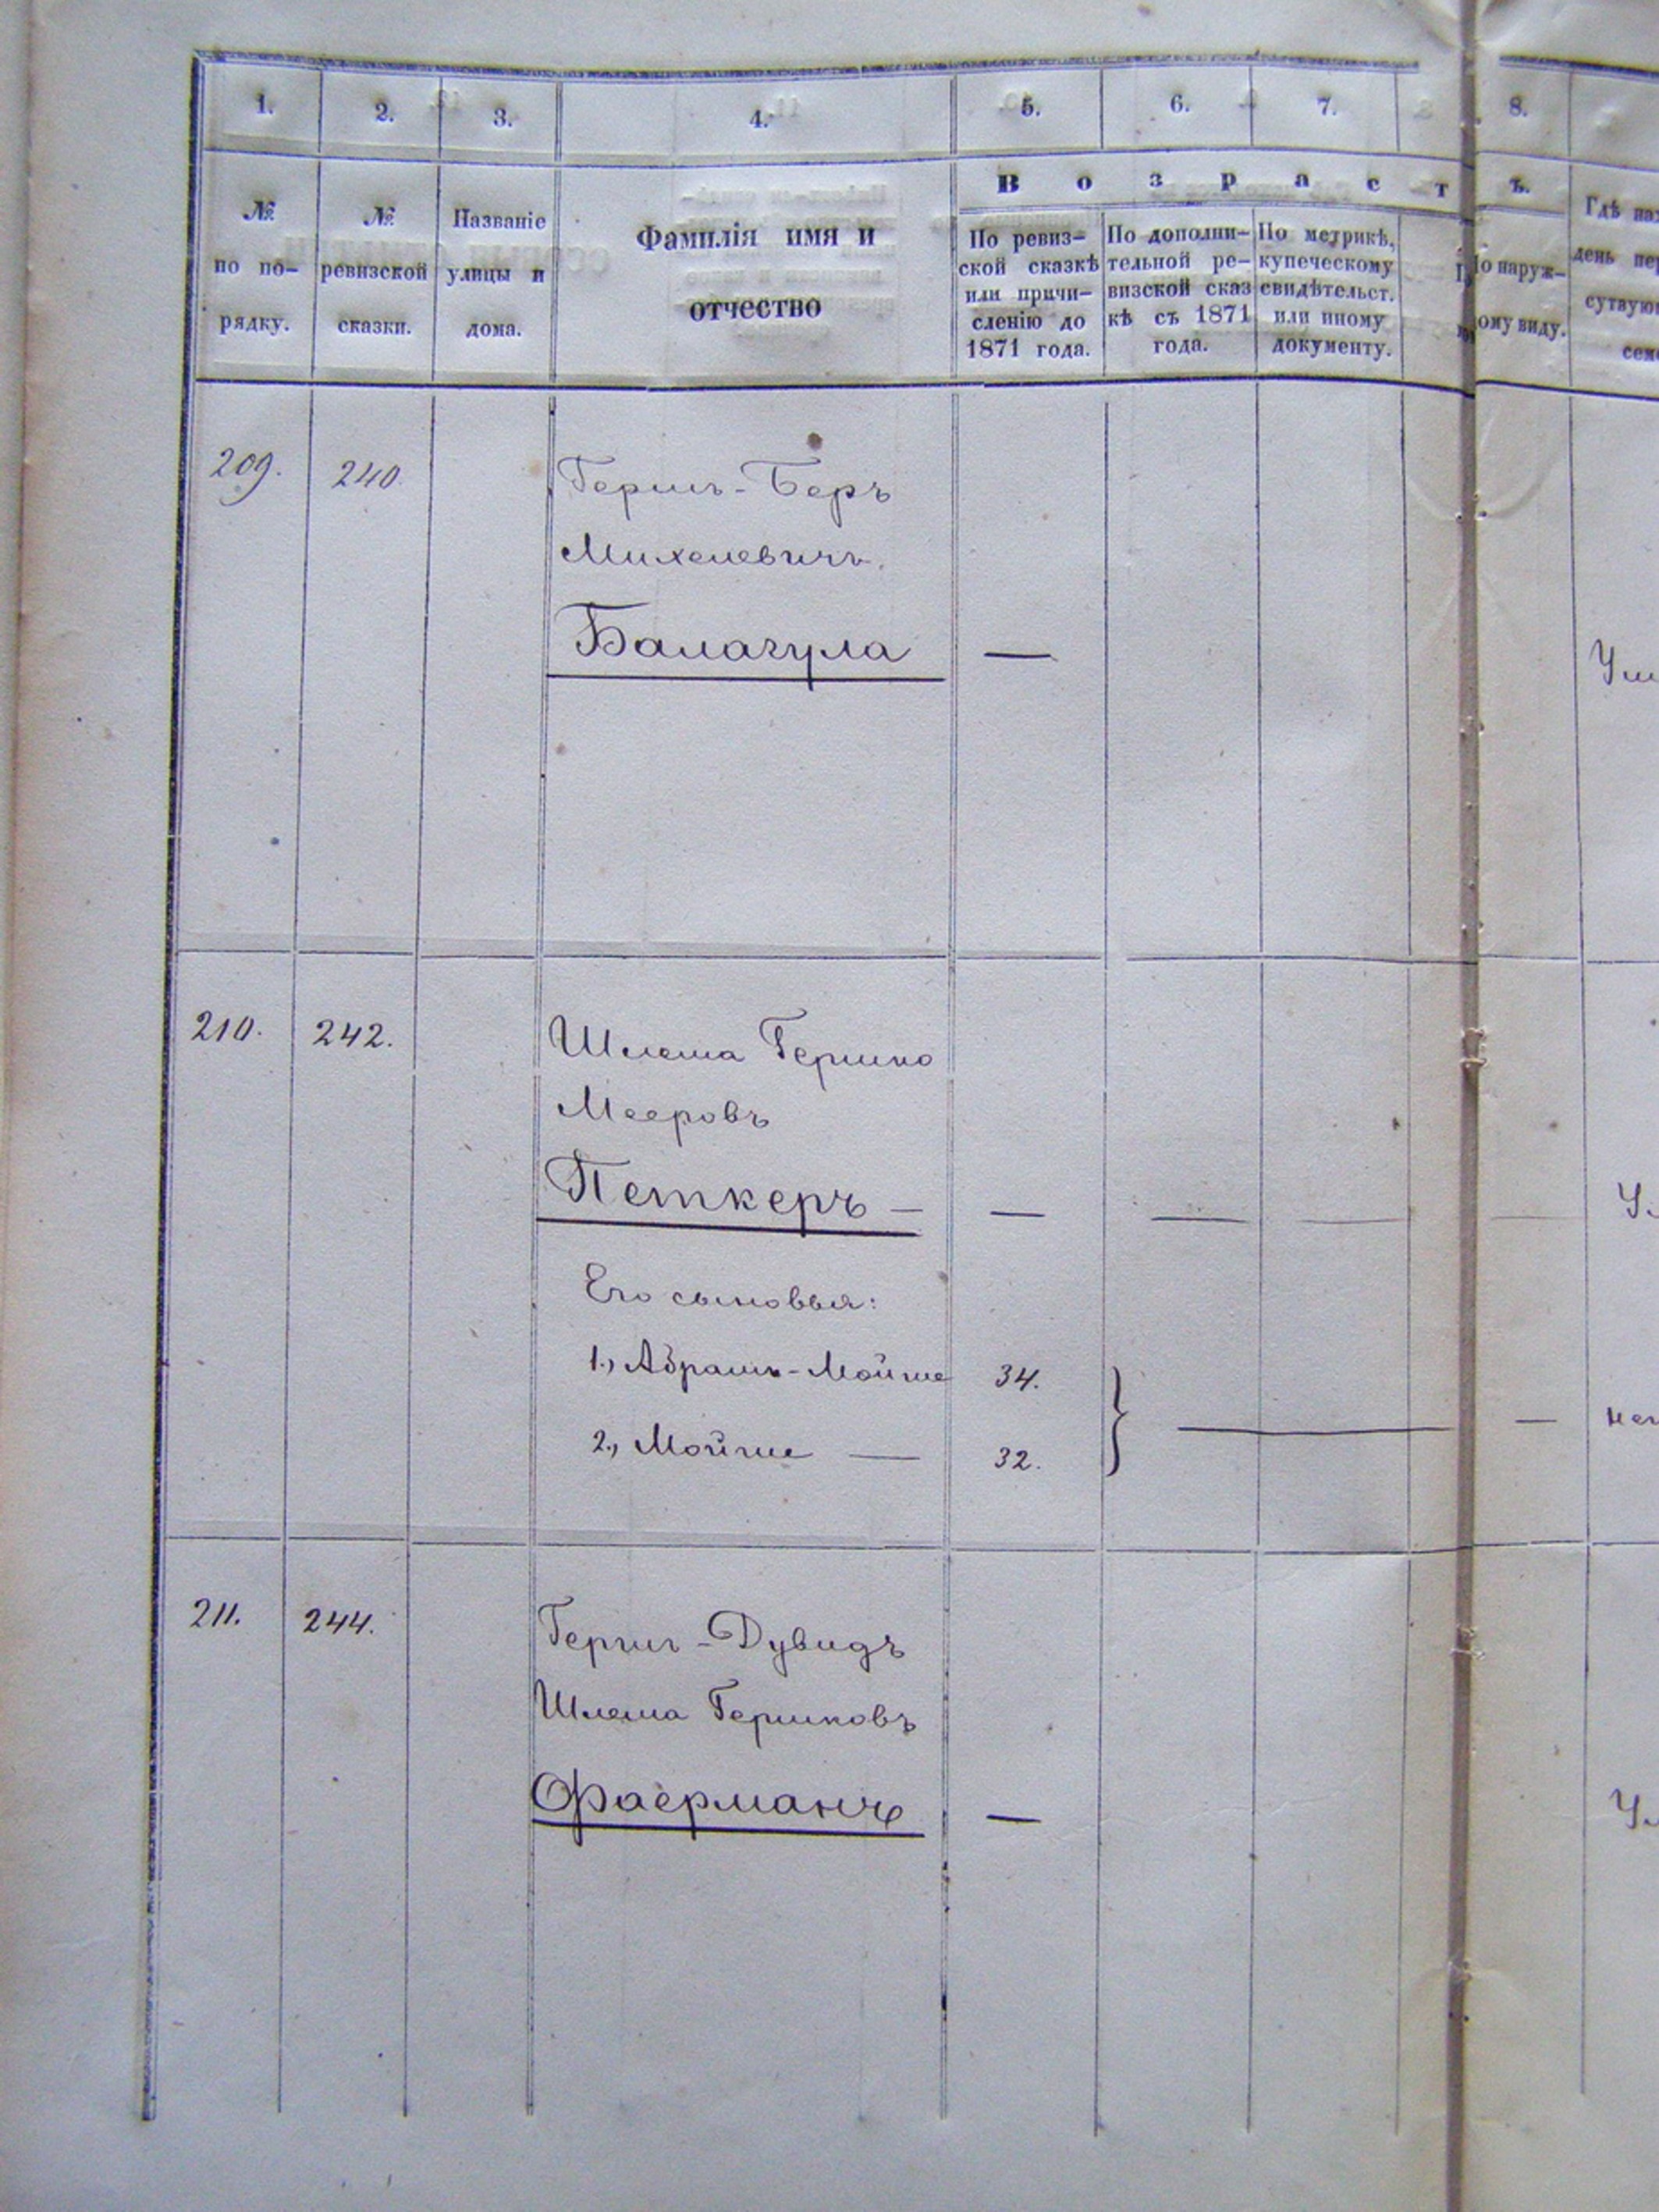 1. 2. 3. 4. 5. 6. 7. 8.
В о з р а с т ъ.
№ по по-рядку.
№ ревизской сказки.
Названіе улицы и дома.
Фамилія имя и
отчество
По ревиз-
ской сказкѣ
или причи-
сленію до
1871 года.
По дополни-
тельной ре-
визской сказ
кѣ съ 1871
года.
По метрикѣ,
купеческому
свидѣтельст.
или иному
документу.
По наруж-
ному виду.
Гдѣ
день
209. 240. Гершъ-Беръ
Михелевичъ.
Балагула —
210. 242. Шлема Гершко
Мееровъ
Петкеръ — —
Его сыновья:
1., Абрамъ-Мойше 34.
2., Мойше — 32.
211. 244. Гершъ-Дувидъ
Шлема Гершковъ
Фаерманъ —